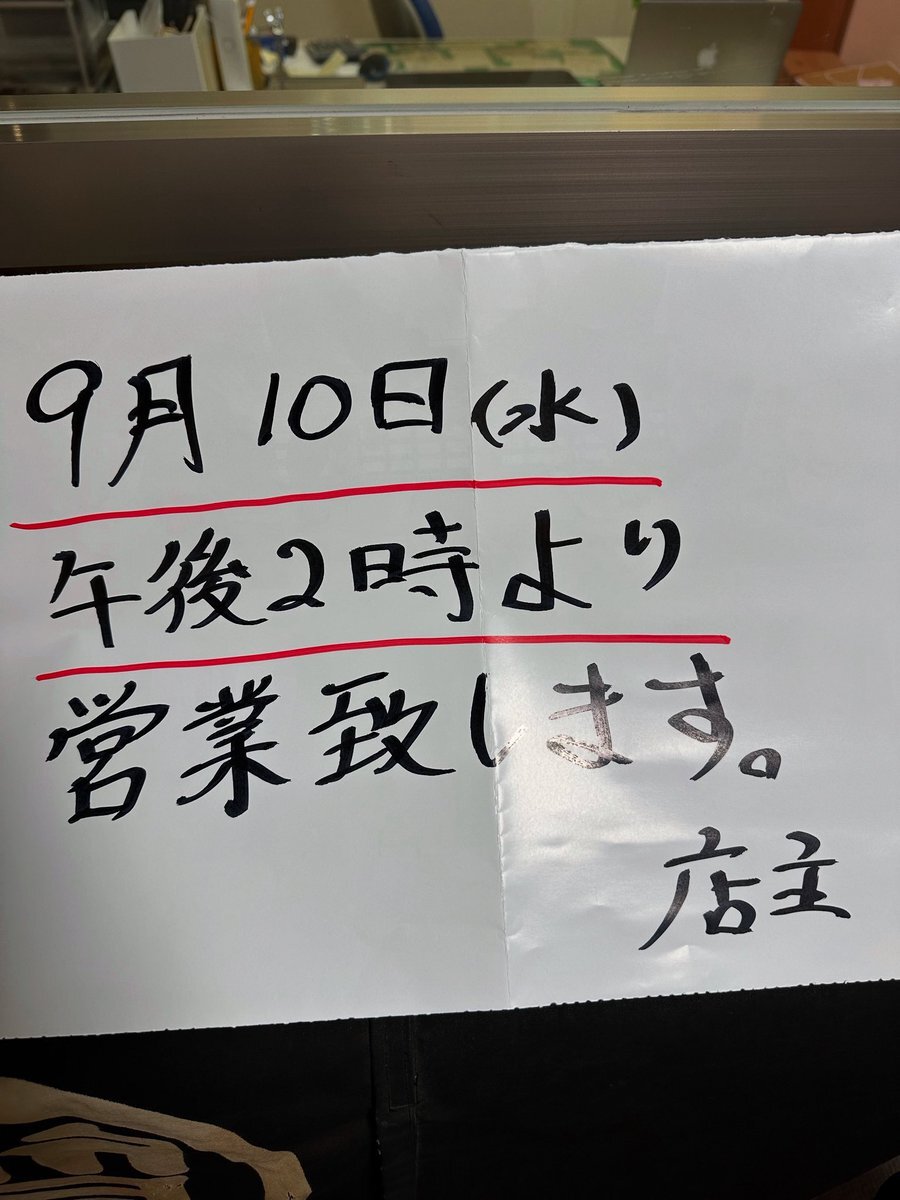 9月10日(水)
午後2時より
営業致します。
店主